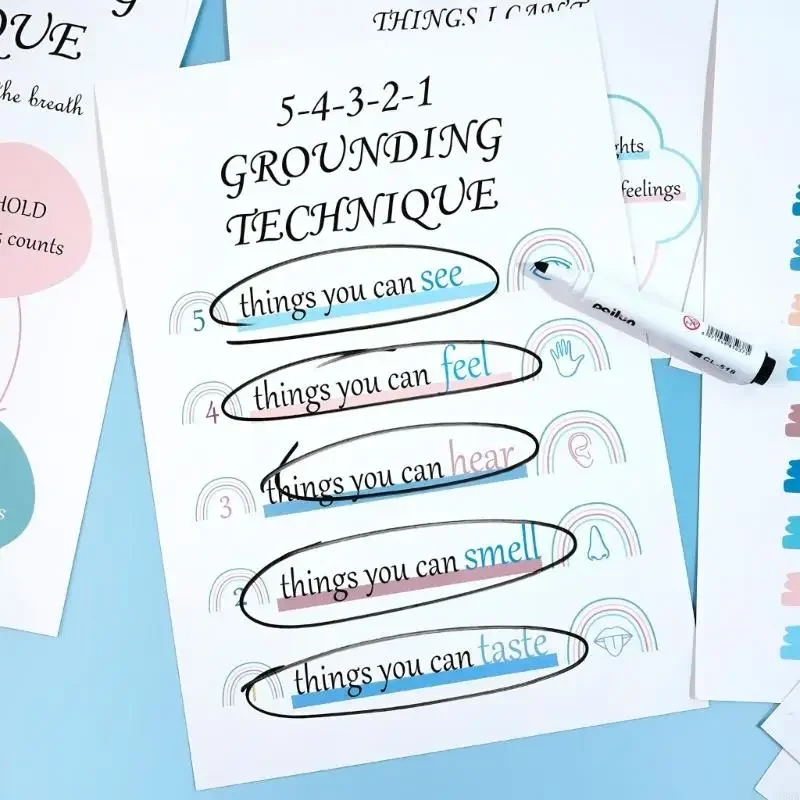 QUE
the breath
HOLD
5 counts
THINGS I CAN'T
5-4-3-2-1
GROUNDING
TECHNIQUE
5 things you can see
4 things you can feel
3 things you can hear
2 things you can smell
things you can taste
feelings
CL-518